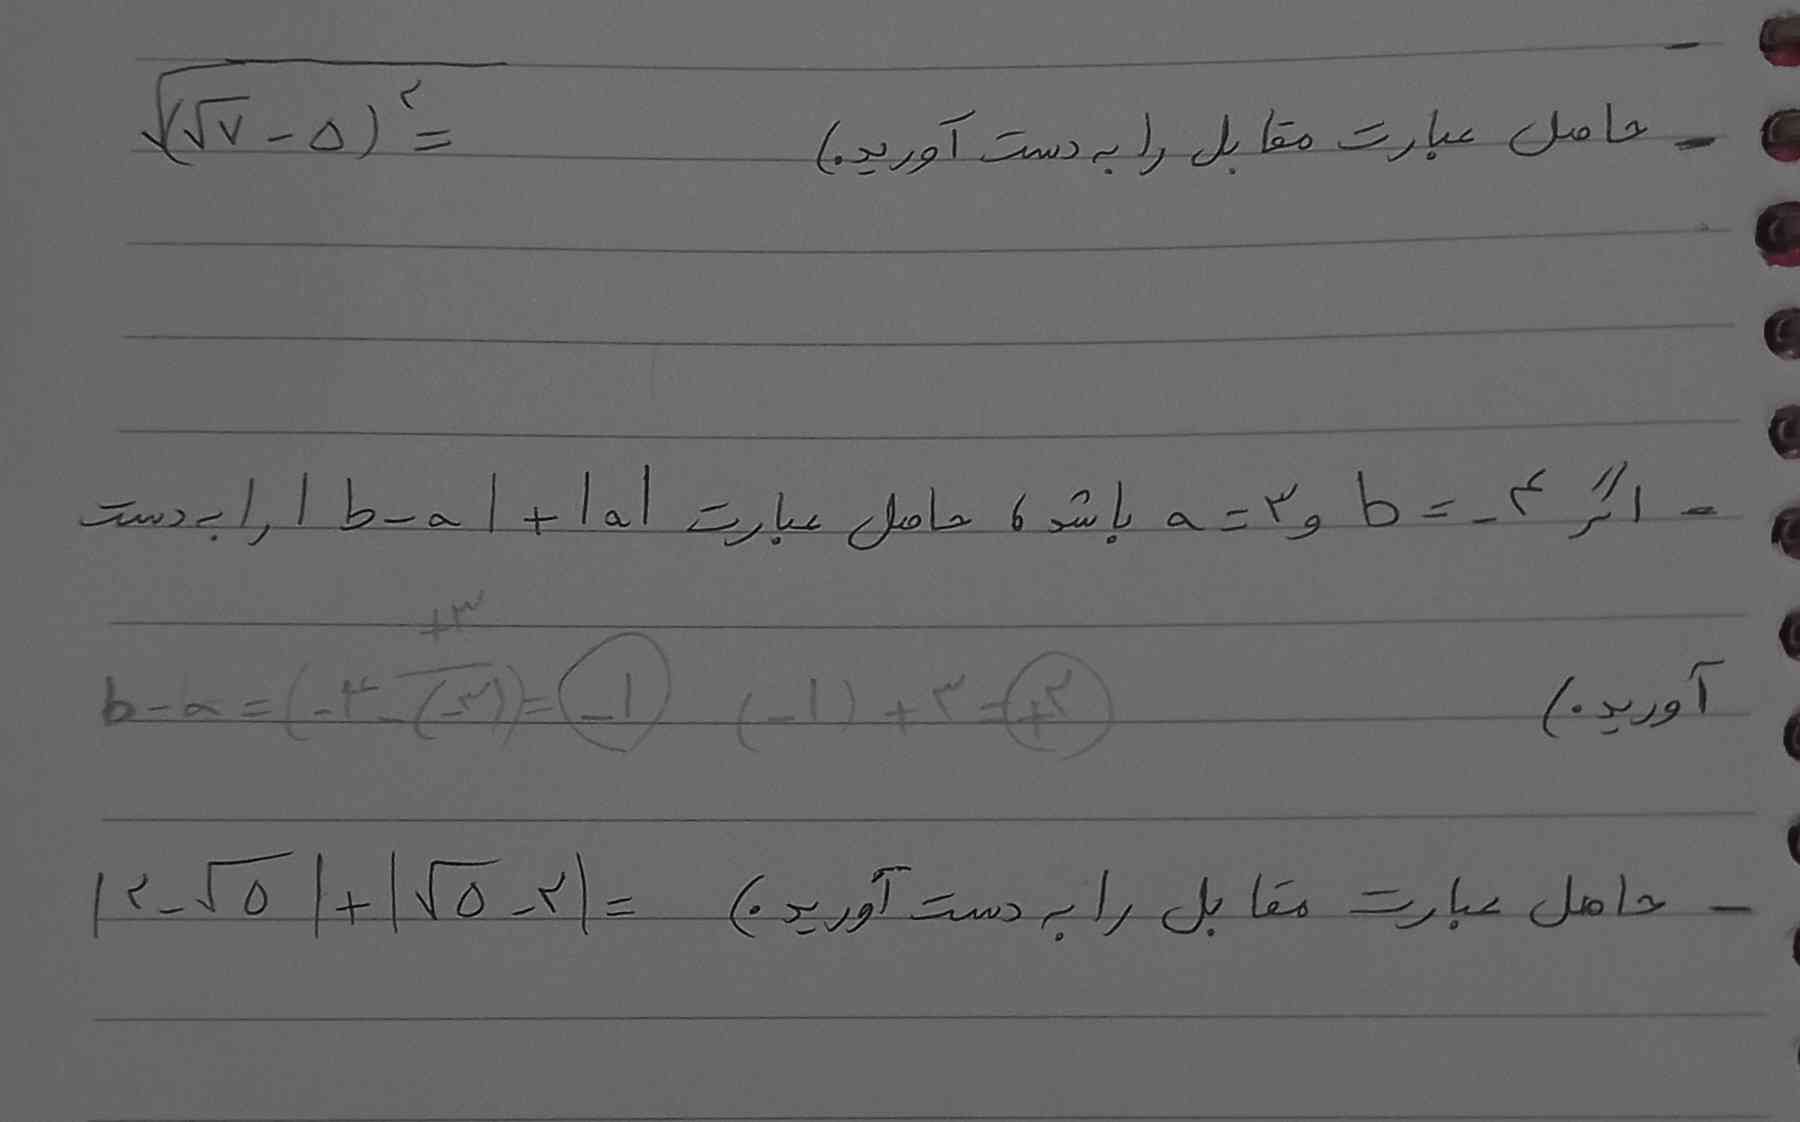 - حاصل عبارت مقابل را به دست آورید.) √(√۷ - ۵)^۲ =
- اگر b = -۴ و a = ۳ باشد، حاصل عبارت |b-a| + |a| را به دست
+۳
آورید.) b-a = (-۴-(-۳)) = -۱ (-۱) + ۳ = +۲
- حاصل عبارت مقابل را به دست آورید.) |۲-√۵| + |√۵-۲| =